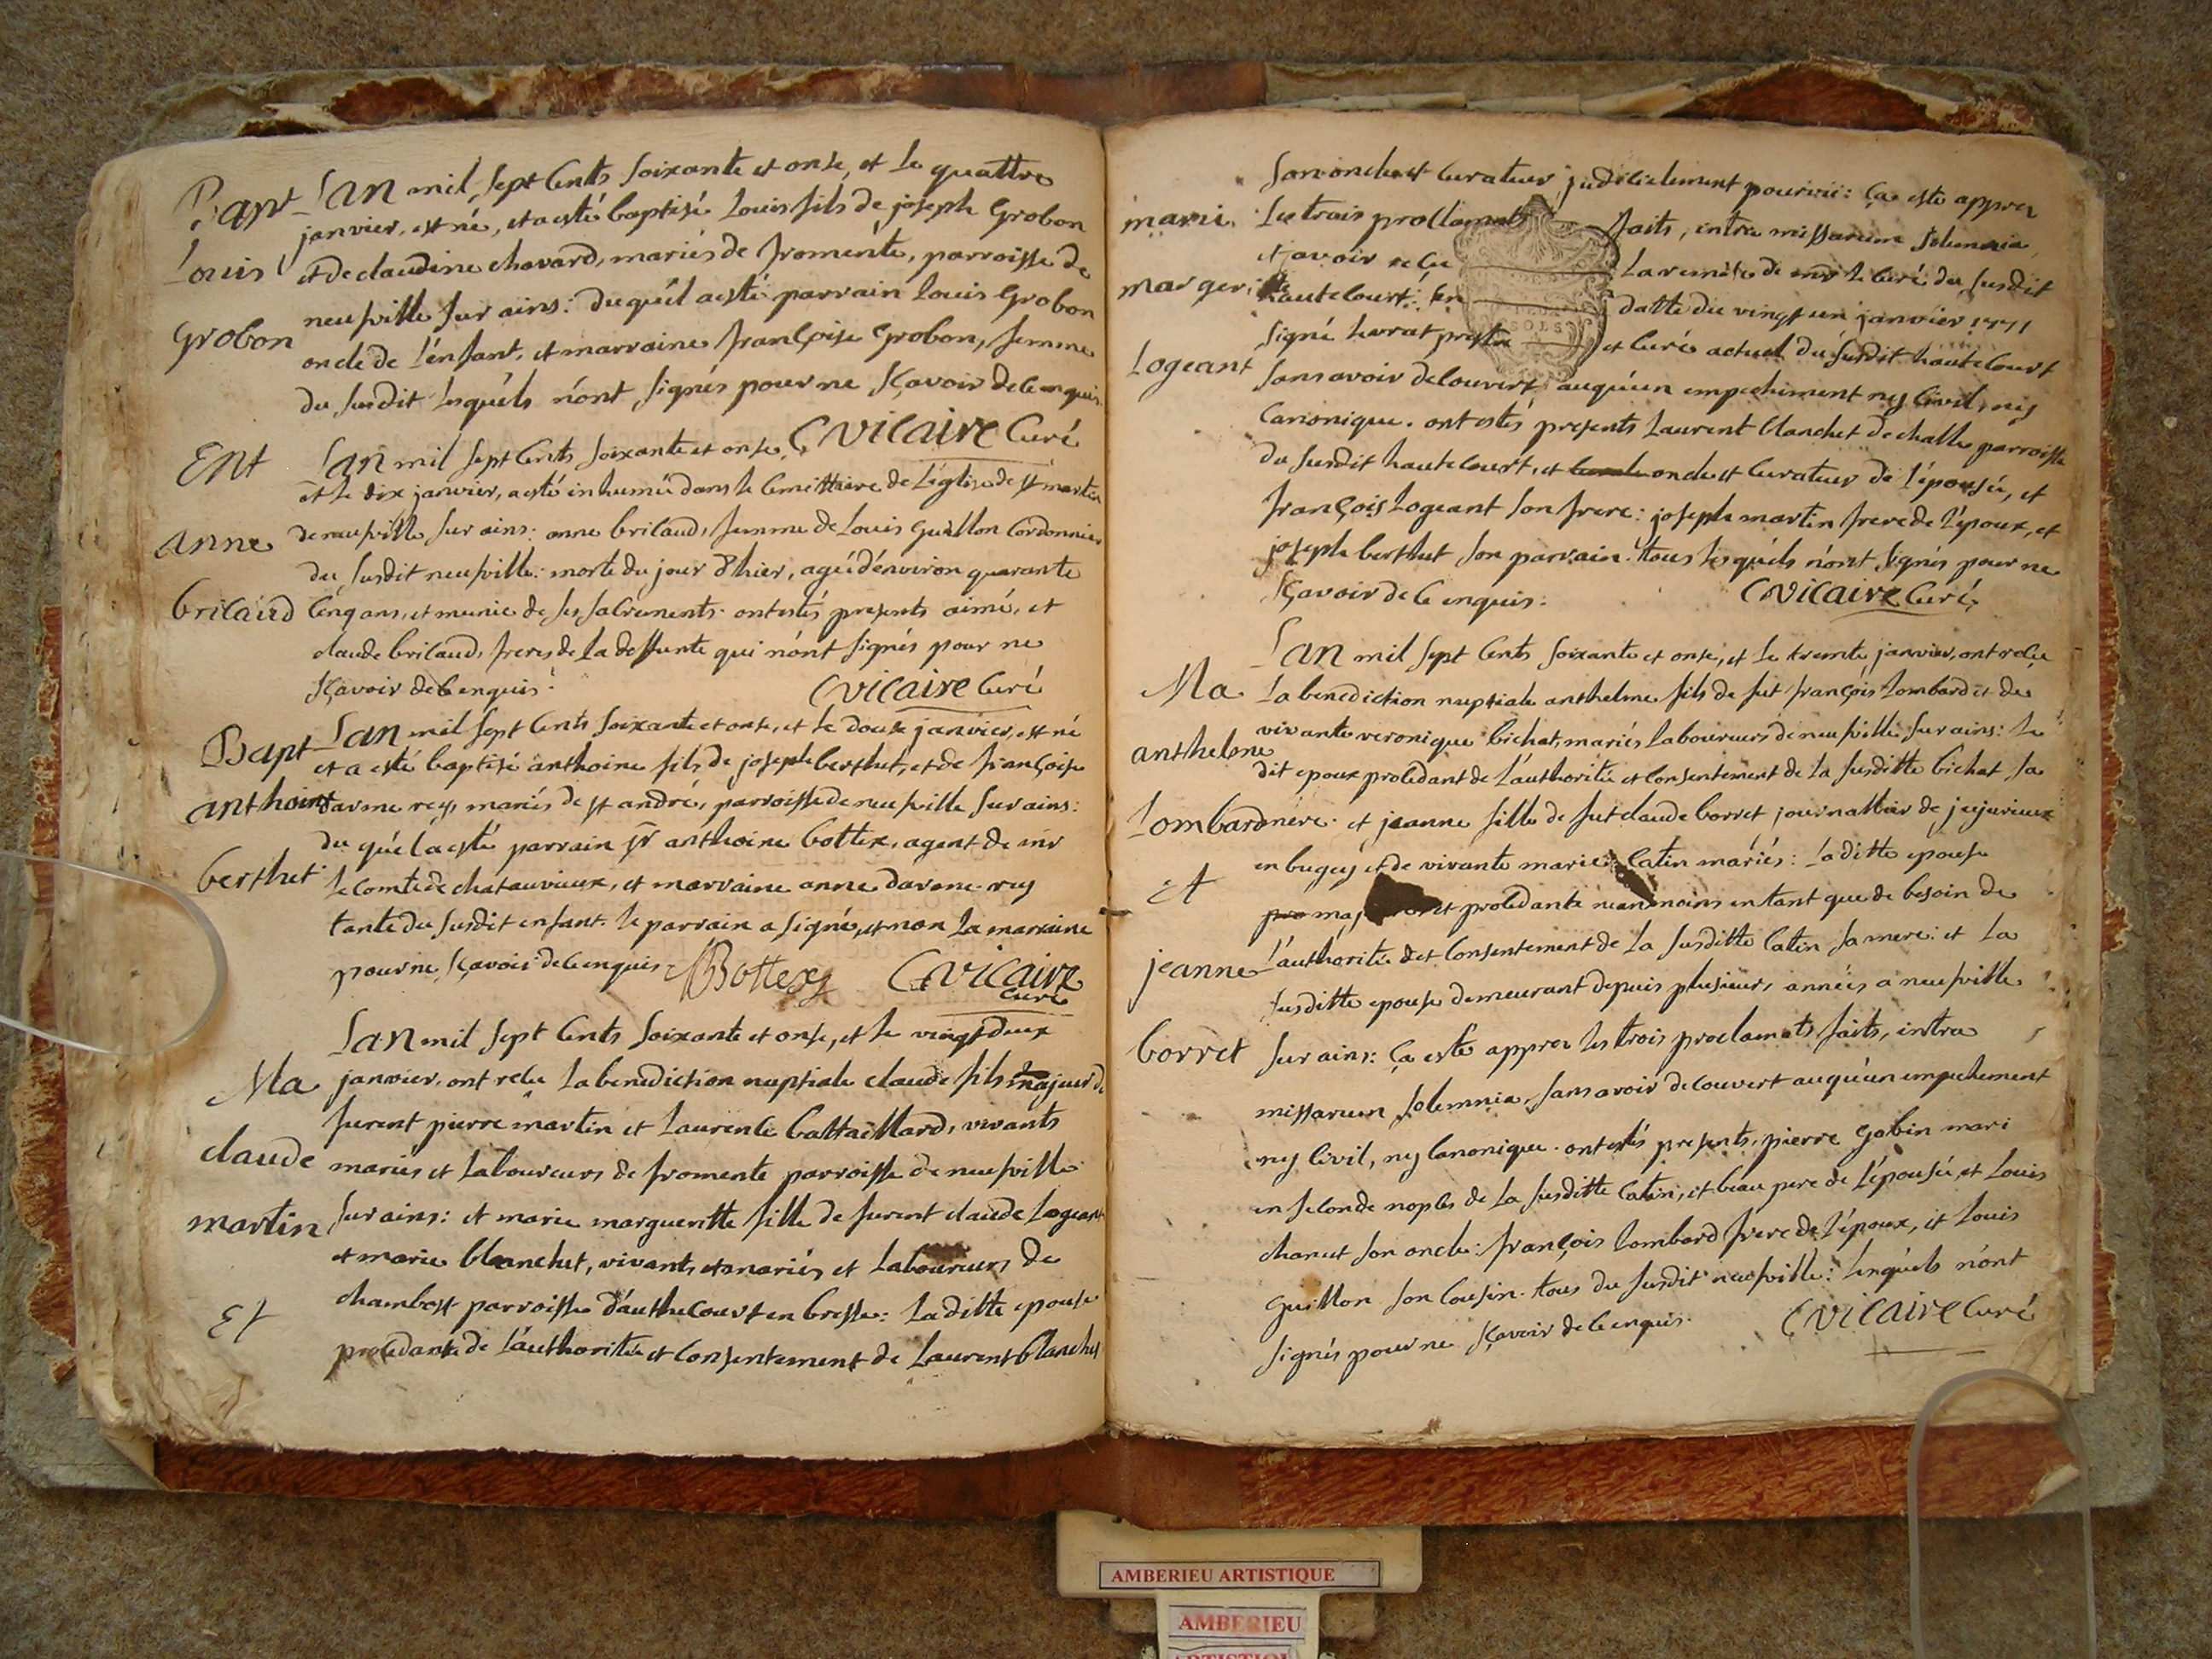 Bapt L'an mil sept Cents soixante et onse, et le quattre
janvier, est né, et a esté baptisé Louis fils de joseph Grobon
Louis et de claudine chavard, mariés de fromente, parroisse de
neufville sur ains: du quél a esté parrain Louis Grobon
Grobon oncle de l'énfant, et marraine françoise Grobon, femme
du susdit lesquéls n'ónt signés pour ne sçavoir de ce enquis.
CVicaire Curé
Ent L'an mil sept Cents soixante et onse,
et le dix janvier, a esté inhumée dans le Cemittaire de l'église de st martin
Anne de neufville sur ains: anne bricaud, femme de Louis Guillon Cordonnier
du susdit neufville: morte du jour d'hier, agée d'énviron quarante
bricaud Cinq ans, et munie de ses sacrements. ont estés presents aimé, et
claude bricaud, freres de la deffunte qui n'ónt signés pour ne
sçavoir de ce enquis.
CVicaire Curé
Bapt L'an mil sept Cents soixante et onse, et le douse janvier, est né
et a esté baptisé anthoine fils de joseph berthet, et de françoise
anthoine davme rey, mariés de st andré, parroisse de neufville sur ains:
du quél a esté parrain sr anthoine bottex, agent de mr
berthet le comte de chatauvieux, et marraine anne davme rey
tante du susdit enfant. le parrain a signé, et non la marraine
pour ne sçavoir de ce enquis.
Bottex CVicaire
Curé
L'an mil sept Cents soixante et onse, et le vingt deux
Ma janvier, ont recu la benediction nuptiale claude fils majeur de
furent pierre martin et Laurence battaillard, vivants
claude mariés et Laboureurs de fromente parroisse de neufville
martin sur ains: et marie margueritte fille de furent claude Logeant
et marie blanchet, vivants et mariés et Laboureurs de
Et chambost parroisse d'authecourt en bresse: la ditte epouse
procedante de l'authorité et Consentement de Laurent blanchet
son oncle et Curateur judiciclement pourvue: Ça esté apprez
marie Les trois proclamats faits, intra missarum solemnia,
et avoir reçu la remise de mr le Curé du susdit
margeritte hautecourt: en datte du vingt un janvier 1771
SOLS
signé herrat prestre et Curé actuel du susdit hautecourt
Logeant sans avoir decouvert auquéun empechement ny Civil, ny
Canonique. ont estés presents Laurent blanchet de challe parroisse
du susdit hautecourt, et oncle et Curateur de l'épousée, et
françois Logeant son frere: joseph martin frere de l'époux, et
joseph berthet son parrain. tous lesquéls n'ónt signés pour ne
sçavoir de ce enquis.
CVicaire Curé,
L'an mil sept Cents soixante et onse, et le trente janvier, ont reçu
Ma la benediction nuptiale anthelme fils de fut françois Lombard et de
vivante veronique bichat, mariés laboureurs de neufville sur ains: le
anthelme dit epoux procedant de l'authorité et Consentement de la susditte bichat sa
Lombard mère. et jeanne fille de fut claude borret journallier de jujurieux
en bugey et de vivante marie Catin mariés: la ditte epouse
et procedante neanmoins en tant que de besoin de
jeanne l'authorité et Consentement de la susditte Catin sa mere: et la
susditte epouse demeurant depuis plusieurs années a neufville
borret sur ains: Ça esté apprez les trois proclamats faits, intra
missarum solemnia, sans avoir decouvert auquéun empechement
ny Civil, ny Canonique. ont estés presents, pierre Gobin mari
en seconde nopces de la susditte Catin, et beau pere de l'épousée, et Louis
chanut son oncle: françois Lombard frere de l'époux, et Louis
Guillon son Cousin. tous du susdit neufville: lesquéls n'ónt
signés pour ne sçavoir de ce enquis.
CVicaire Curé
AMBERIEU ARTISTIQUE
AMBERIEU
ARTISTIQUE